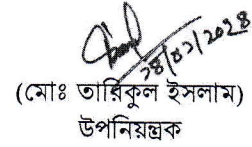 ২৪/০১/২০২৪
(মোঃ তারিকুল ইসলাম)
উপনিয়ন্ত্রক